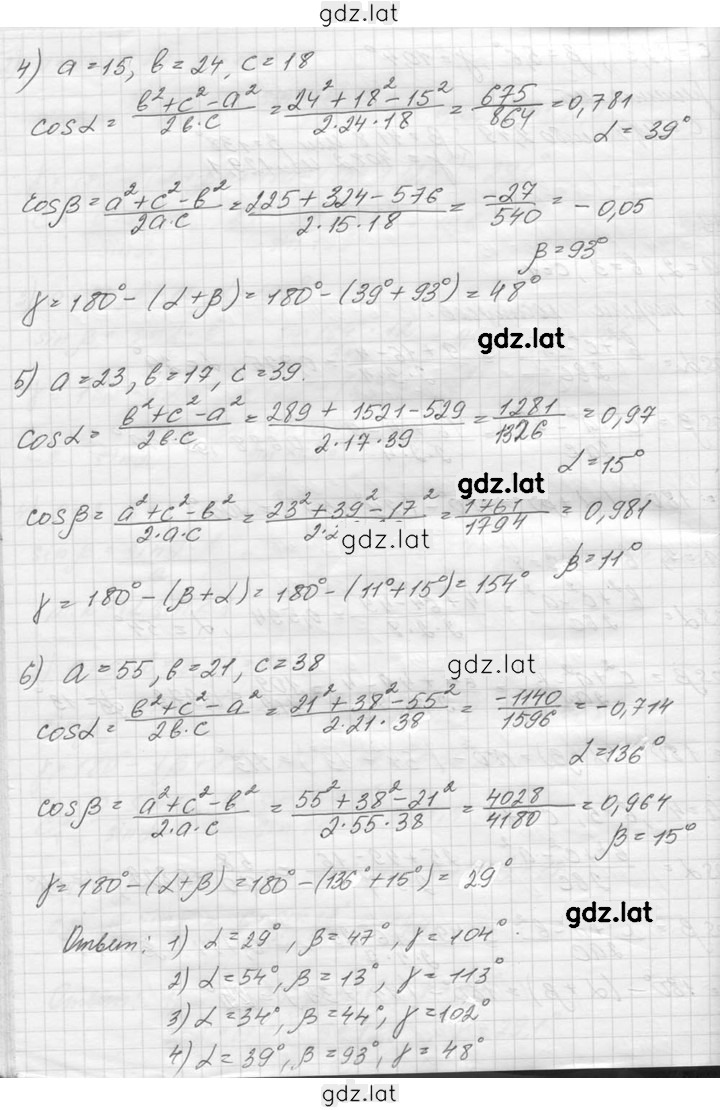 gdz.lat
4) a=15, b=24, c=18
cosα = (b²+c²-a²)/(2b·c) = (24²+18²-15²)/(2·24·18) = 675/864 = 0,781
α = 39°
cosβ = (a²+c²-b²)/(2a·c) = (225+324-576)/(2·15·18) = -27/540 = -0,05
β = 93°
γ = 180° - (α+β) = 180° - (39°+93°) = 48°
gdz.lat
5) a=23, b=17, c=39.
cosα = (b²+c²-a²)/(2b·c) = (289 + 1521-529)/(2·17·39) = 1281/1326 = 0,97
α = 15°
gdz.lat
cosβ = (a²+c²-b²)/(2·a·c) = (23²+39²-17²)/(2·2 = 1761/1794 = 0,981
gdz.lat
β = 11°
γ = 180° - (β+α) = 180° - (11°+15°) = 154°
6) a=55, b=21, c=38
gdz.lat
cosα = (b²+c²-a²)/(2b·c) = (21²+38²-55²)/(2·21·38) = -1140/1596 = -0,714
α = 136°
cosβ = (a²+c²-b²)/(2·a·c) = (55²+38²-21²)/(2·55·38) = 4028/4180 = 0,964
β = 15°
γ = 180° - (α+β) = 180° - (136°+15°) = 29°
gdz.lat
Ответ: 1) α = 29°, β = 47°, γ = 104°.
2) α = 54°, β = 13°, γ = 113°
3) α = 34°, β = 44°, γ = 102°
4) α = 39°, β = 93°, γ = 48°
gdz.lat